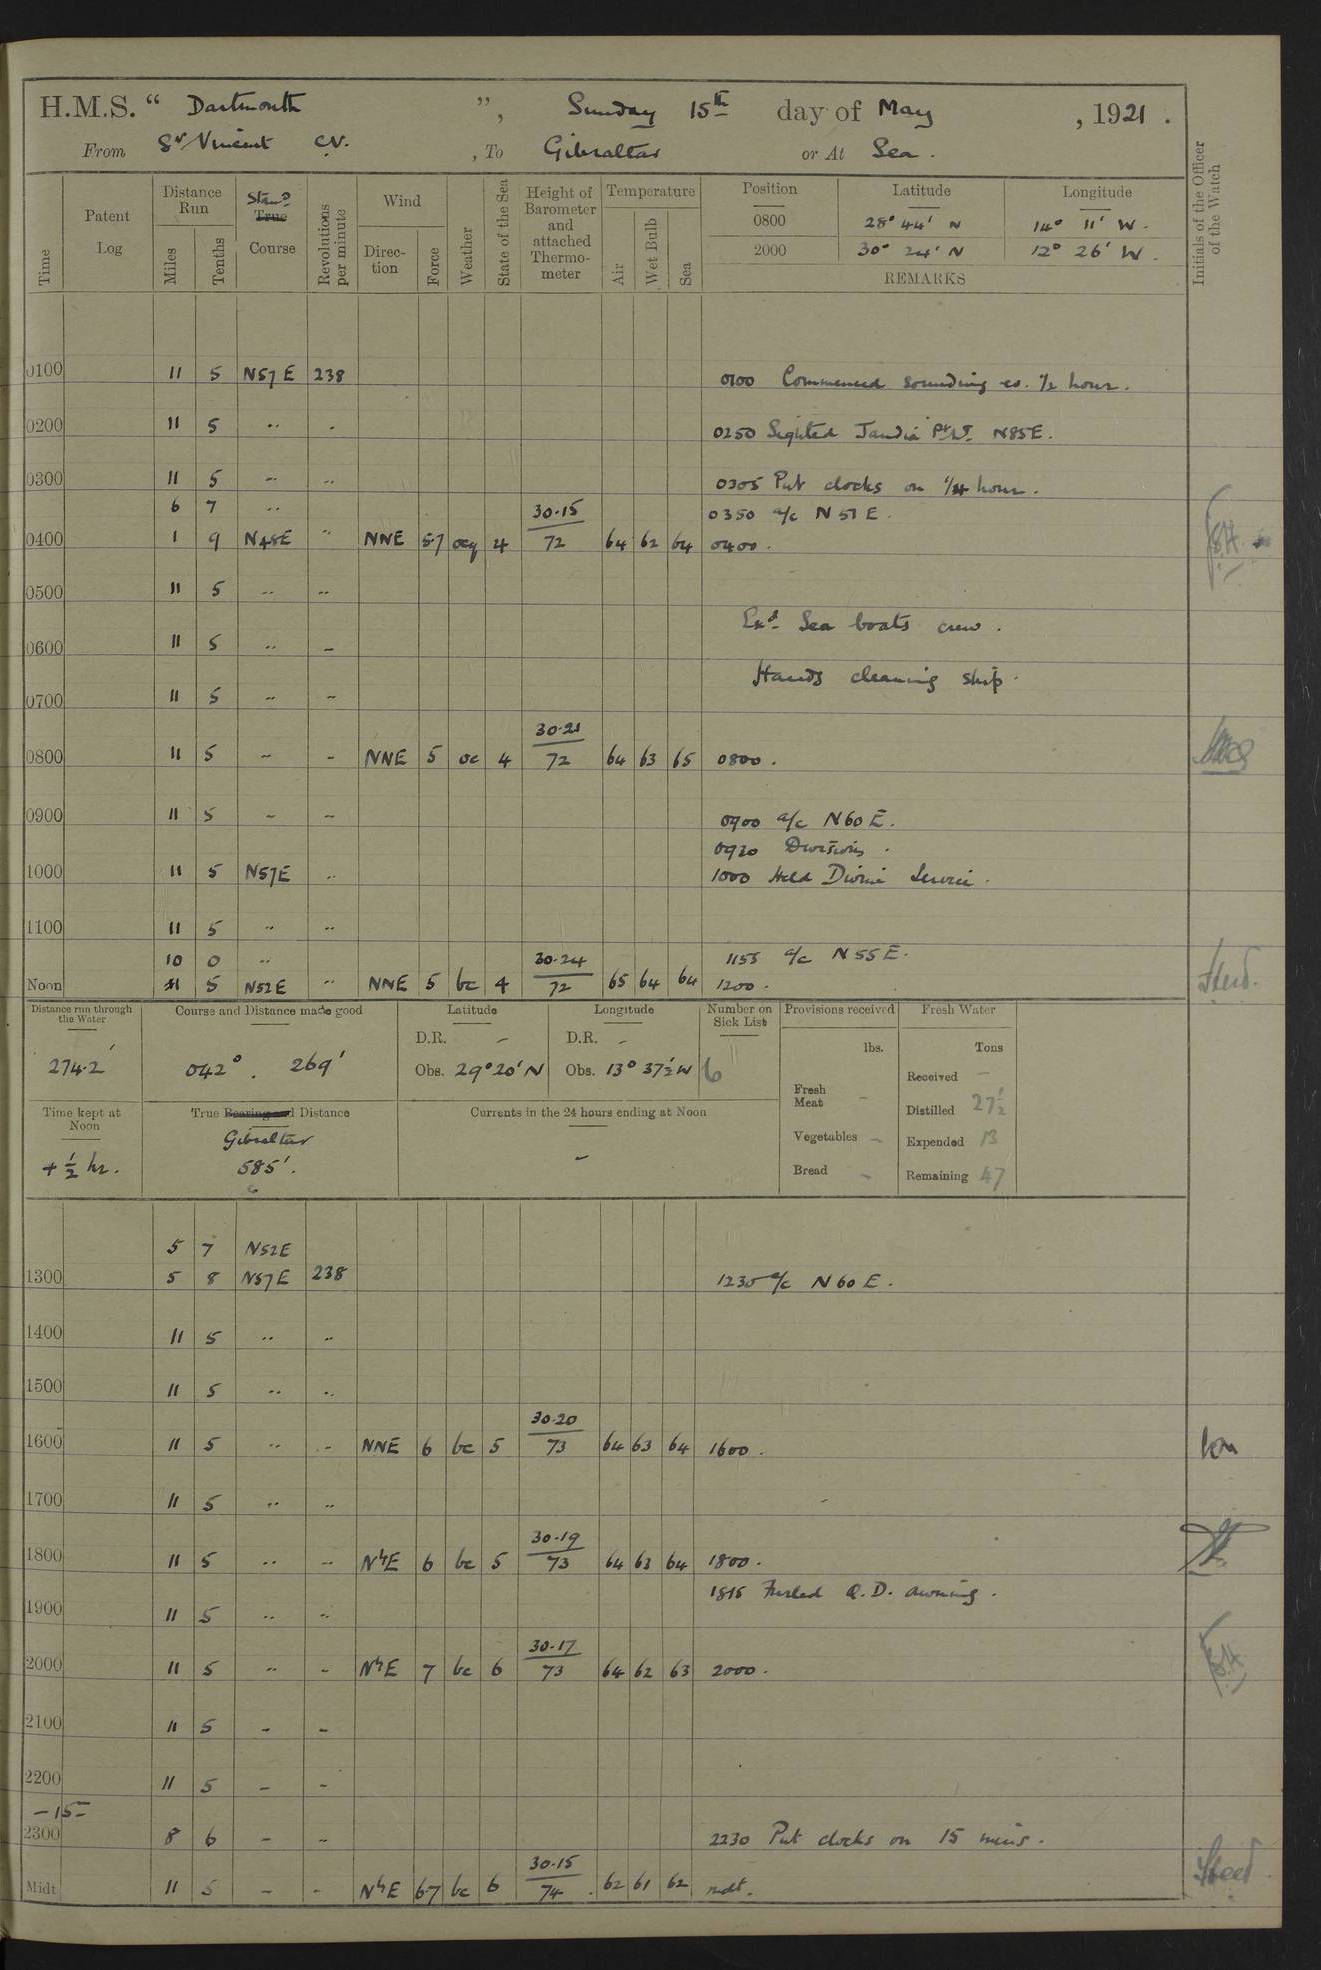 H.M.S. “ Dartmouth ”, Sunday 15th day of May , 1921 .
From St Vincent C.V. , To Gibraltar or At Sea .
Time Patent Log Distance Run Miles Tenths Stand True Course Revolutions per minute Wind Direction Force Weather State of the Sea Height of Barometer and attached Thermometer Temperature Air Wet Bulb Sea Position Latitude Longitude Initials of the Officer of the Watch
0800 28° 44' N 14° 11' W .
2000 30° 24' N 12° 26' W .
REMARKS
0100 11 5 N57E 238 0100 Commenced sounding ev. 1/2 hour .
0200 11 5 .. . 0250 Sighted Jandia Pt Lt N85E .
0300 11 5 .. .. 0305 Put clocks on 1/4 hour .
6 7 .. 30.15 0350 a/c N51E .
0400 1 9 N48E .. NNE 5-7 ocq 4 72 64 62 64 0400 .
0500 11 5 .. ..
Exd Sea boats crew .
0600 11 5 .. –
Hands cleaning ship .
0700 11 5 – –
30.21
0800 11 5 – – NNE 5 oc 4 72 64 63 65 0800 .
0900 11 5 – – 0900 a/c N60E .
0920 Divisions .
1000 11 5 N57E .. 1000 Held Divine Service .
1100 11 5 .. ..
10 0 .. 30.24 1155 a/c N55E .
Noon 11 5 N52E .. NNE 5 bc 4 72 65 64 64 1200 .
Distance run through the Water Course and Distance made good Latitude Longitude Number on Sick List Provisions received Fresh Water
D.R. – D.R. – lbs. Tons
274.2' 042° . 269' Obs. 29°20'N Obs. 13° 37½'W 6
Received –
Fresh Meat – Distilled 27½
Time kept at Noon True Bearing and Distance Currents in the 24 hours ending at Noon
Gibraltar
Vegetables – Expended 13
+ ½ hr. 585' . –
Bread – Remaining 47
5 7 N52E
1300 5 8 N57E 238 1230 a/c N60E .
1400 11 5 .. ..
1500 11 5 .. ..
30.20
1600 11 5 .. .. NNE 6 bc 5 73 64 63 64 1600 .
1700 11 5 .. ..
30.19
1800 11 5 .. .. NhE 6 bc 5 73 64 63 64 1800 .
1815 Furled Q.D. awning .
1900 11 5 .. ..
30.17
2000 11 5 .. – NhE 7 bc 6 73 64 62 63 2000 .
2100 11 5 – –
2200 11 5 – –
– 15 –
2300 8 6 – – 2230 Put clocks on 15 mins .
30.15
Midt 11 5 – – NhE 6-7 bc 6 74 62 61 62 mdt .